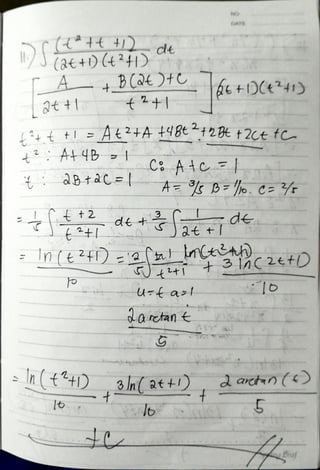 NO
DATE
11) ∫ (t² + t + 1) / (2t+1)(t²+1) dt
[ A / 2t+1 + B(2t)+C / t²+1 ] (2t+1)(t²+1)
t² + t + 1 = At² + A + 4Bt² + 2Bt + 2Ct + C
t²: A + 4B = 1 C: A + C = 1
t: 2B + 2C = 1 A = 3/5 B = 1/10. C = 2/5
= 1/5 ∫ t+2 / t²+1 dt + 3/5 ∫ 1 / 2t+1 dt
= ln(t²+1) / 10 = 2/5 ∫ 1 / t²+1 + 3 ln(2t+1) / 10
u=t a=1
2 arctan t / 5
= ln(t²+1) / 10 + 3 ln(2t+1) / 10 + 2 arctan(t) / 5
+C